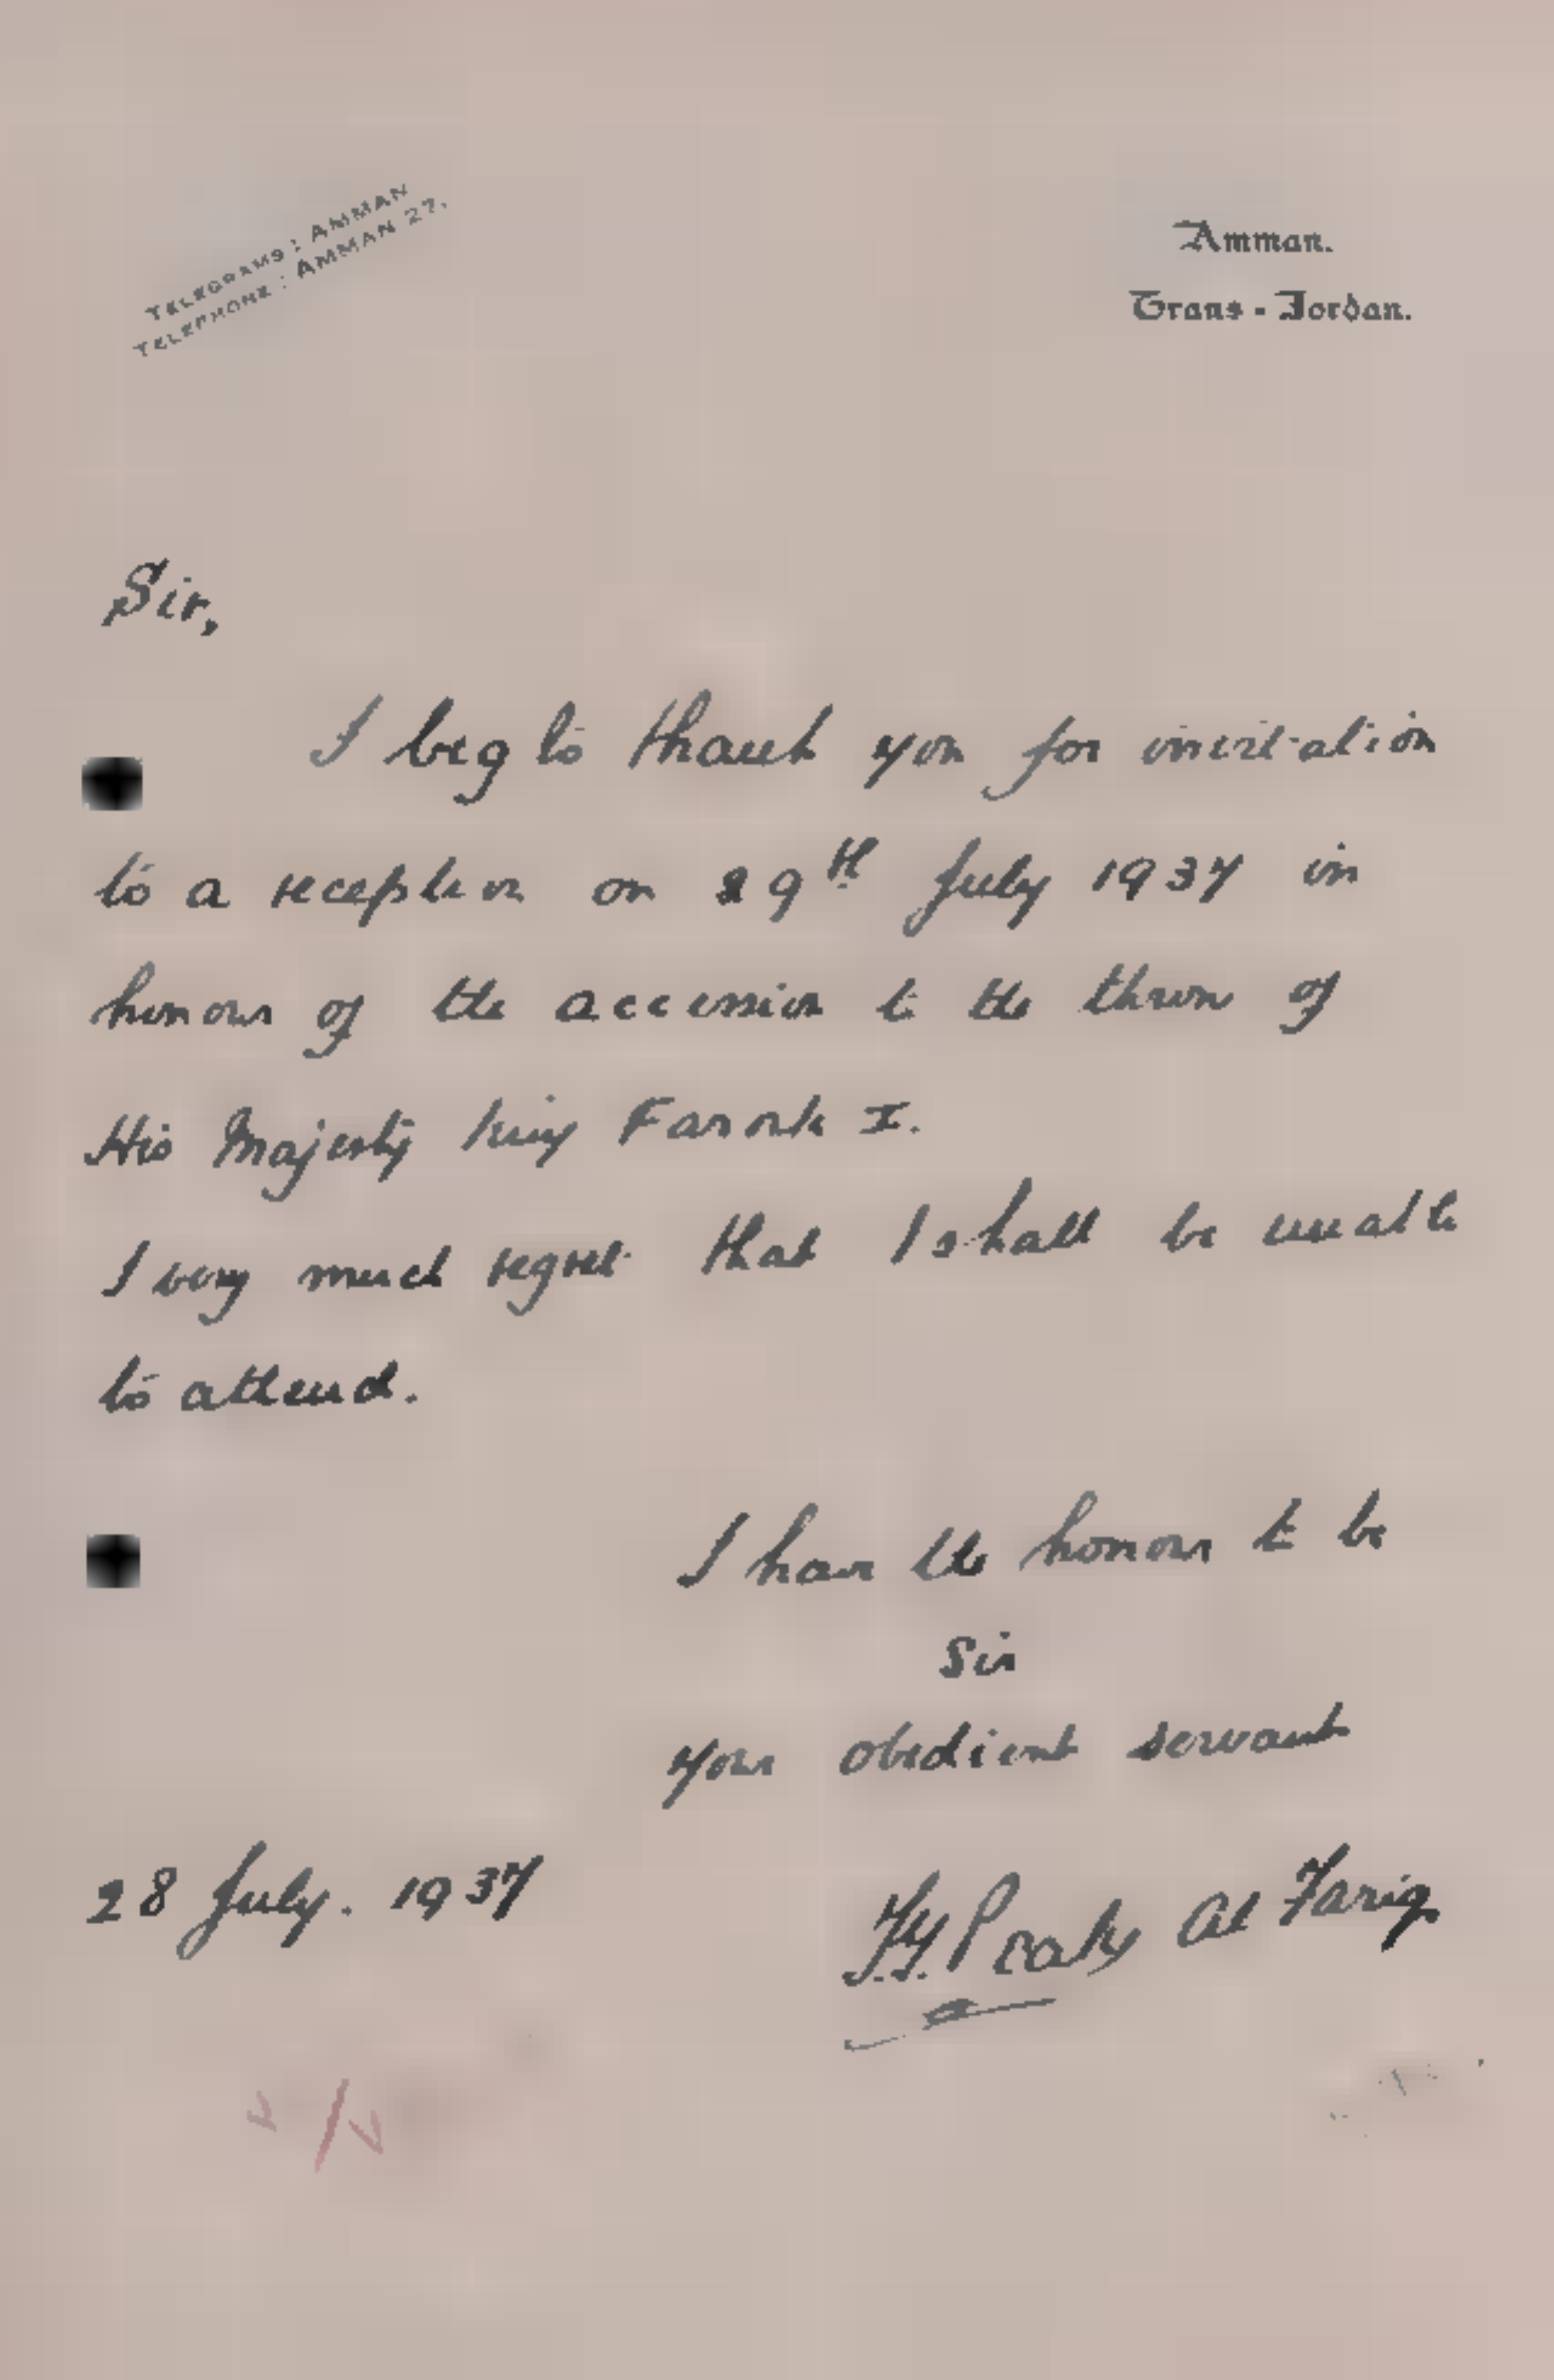 TELEGRAMS : AMMAN
TELEPHONE : AMMAN 27.
Amman.
Trans - Jordan.
Sir,
I beg to thank you for invitation
to a reception on 29th July 1937 in
honour of the accession to the throne of
His Majesty King Farouk I.
I very much regret that I shall be unable
to attend.
I have the honour to be
Sir
your obedient servant
28 July. 1937
F.G. Peake Al Fariq